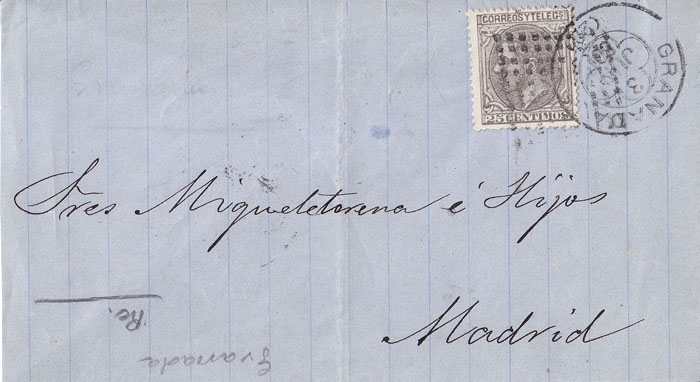 CORREOS Y TELEGS
25 CENTIMOS
GRANADA
3
Sres Migueletorena é Hijos
Madrid
Granada